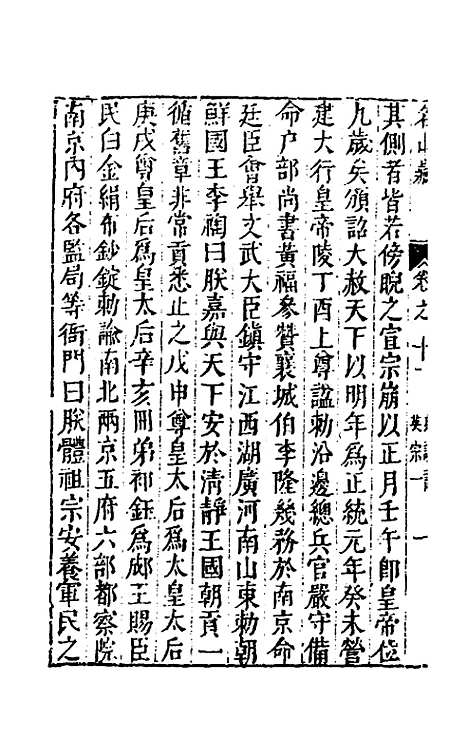 名山藏 卷之十一 典謨記 英宗一 一
其側者皆若傍睨之宣宗崩以正月壬午卽皇帝位
九歲矣頒詔大赦天下以明年爲正統元年癸未營
建大行皇帝陵丁酉上尊謚勅沿邊總兵官嚴守備
命户部尚書黃福參贊襄城伯李隆幾務於南京命
廷臣會舉文武大臣鎮守江西湖廣河南山東勅朝
鮮國王李祹曰朕嘉與天下安於清靜王國朝貢一
循舊章非常貢悉止之戊申尊皇太后爲太皇太后
庚戌尊皇后爲皇太后辛亥冊弟祁鈺爲郕王賜臣
民白金絹布鈔錠勅諭南北兩京五府六部都察院
南京內府各監局等衙門曰朕體祖宗安養軍民之